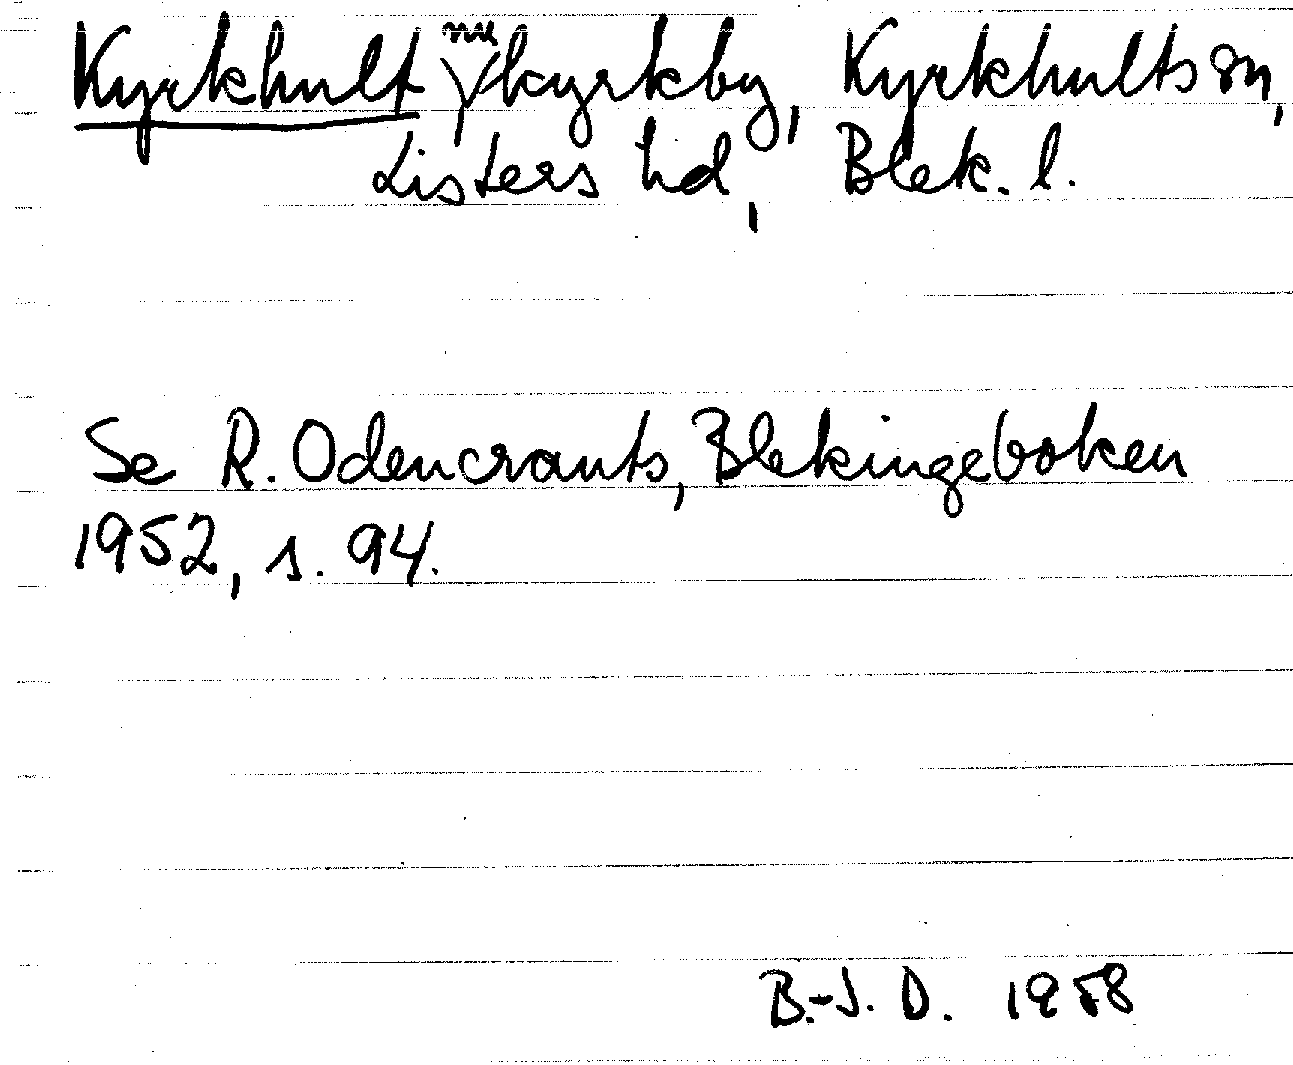 Kyrkhult nu kyrkby, Kyrkhults sn,
Listers hd, Blek. l.
Se R. Odencrants, Blekingeboken
1952, s. 94.
B.-J. D. 1958